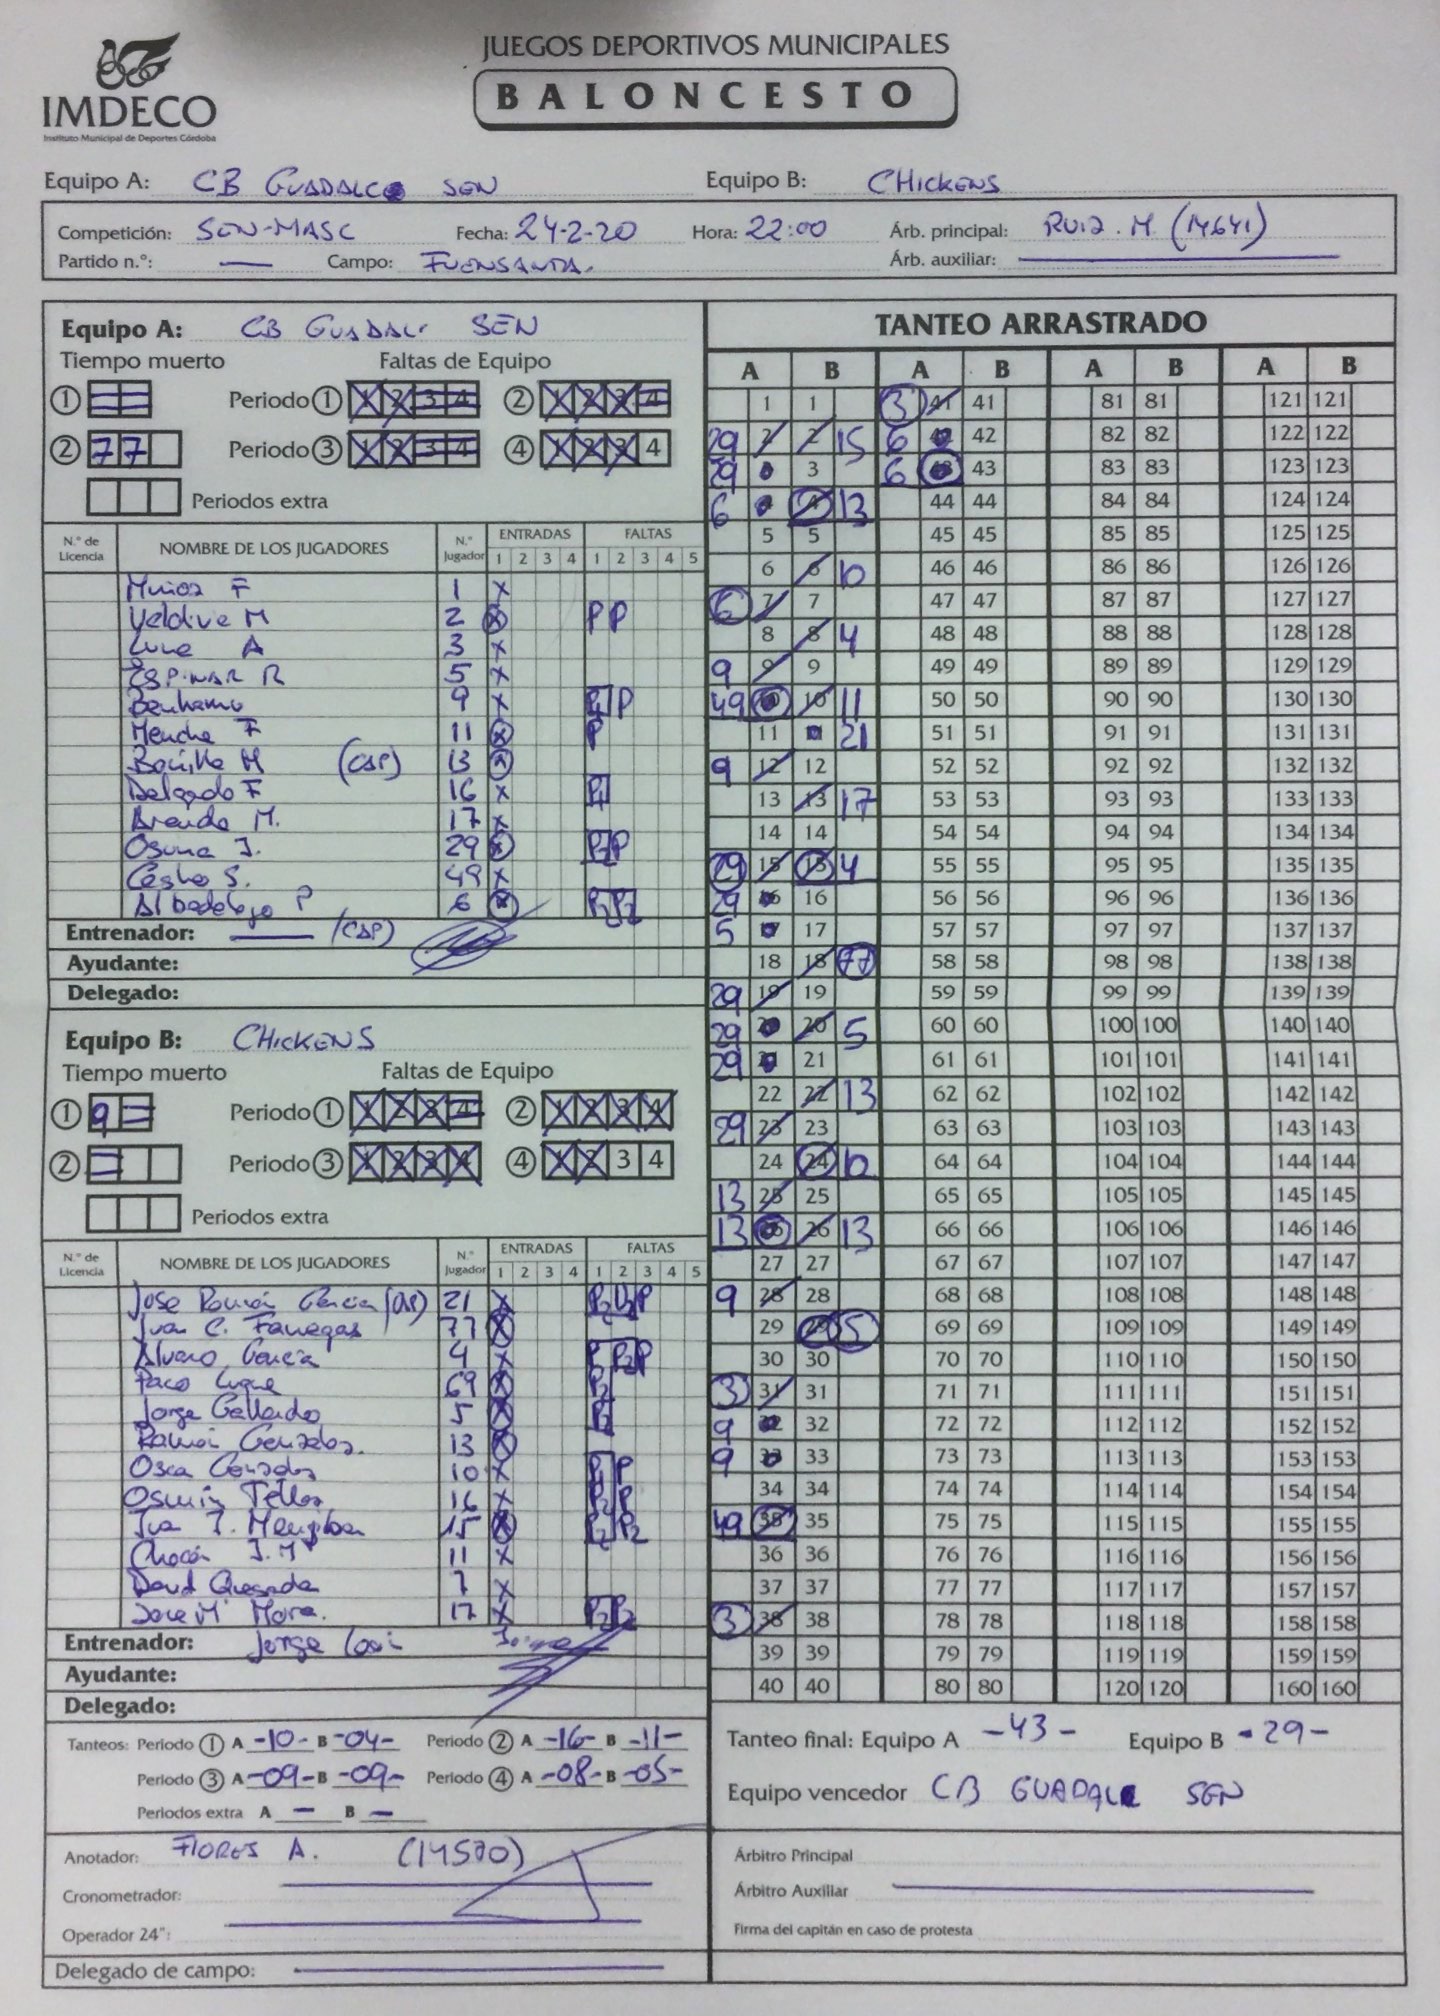 JUEGOS DEPORTIVOS MUNICIPALES
BALONCESTO
IMDECO
Instituto Municipal de Deportes Córdoba
Equipo A: CB GUADALC SEN Equipo B: CHICKENS
Competición: SEN-MASC Fecha: 24-2-20 Hora: 22:00 Árb. principal: RUIZ. M. (14641)
Partido n.º: — Campo: FUENSANTA. Árb. auxiliar:
Equipo A: CB GUADAL SEN
Tiempo muerto Faltas de Equipo
① Periodo ① 1 2 3 4 ② 1 2 3 4
② 7 7 Periodo ③ 1 2 3 4 ④ 1 2 3 4
Periodos extra
N.º de Licencia NOMBRE DE LOS JUGADORES N.º Jugador ENTRADAS 1 2 3 4 FALTAS 1 2 3 4 5
Muñoz F 1 x
Valdive M 2 x P P
Luna A 3 x
ESPINAR R 5 x
Benhamu 9 x P1 P
Menche F 11 x P
Bonilla M (CAP) 13 x
Delgado F 16 x P1
Aranda M. 17 x
Osuna J. 29 x P2 P
Castro S. 49 x
Albadalejo P 6 x P2 P2
Entrenador: — (CAP)
Ayudante:
Delegado:
Equipo B: CHICKENS
Tiempo muerto Faltas de Equipo
① 9 Periodo ① 1 2 3 4 ② 1 2 3 4
② Periodo ③ 1 2 3 4 ④ 1 2 3 4
Periodos extra
N.º de Licencia NOMBRE DE LOS JUGADORES N.º Jugador ENTRADAS 1 2 3 4 FALTAS 1 2 3 4 5
Jose Ramón García (CAP) 21 x P2 U2 P
Juan C. Fanegas 77 x
Alvaro García 4 x P P2 P
Paco Luque 69 x P2
Jorge Gallardo 5 x P2
Ramón González. 13 x
Oscar González 10 x P1 P
Osmin Tellez 16 x P2 P
J. 15 x P2 P2
Chacón J. M 11 x
David Quesada 7 x
Jose Mª Mora. 17 x P2 P2
Entrenador: Jorge
Ayudante:
Delegado:
Tanteos: Periodo ① A -10- B -04- Periodo ② A -16- B -11-
Periodo ③ A -09- B -09- Periodo ④ A -08- B -05-
Periodos extra A — B —
Anotador: FLORES A. (14570)
Cronometrador:
Operador 24":
Delegado de campo:
TANTEO ARRASTRADO
A B A B A B A B
1 1 3 41 41 81 81 121 121
29 2 2 15 6 42 42 82 82 122 122
29 3 3 6 43 43 83 83 123 123
6 4 4 13 44 44 84 84 124 124
5 5 45 45 85 85 125 125
6 6 10 46 46 86 86 126 126
6 7 7 47 47 87 87 127 127
8 8 4 48 48 88 88 128 128
9 9 9 49 49 89 89 129 129
49 10 10 11 50 50 90 90 130 130
11 11 21 51 51 91 91 131 131
9 12 12 52 52 92 92 132 132
13 13 17 53 53 93 93 133 133
14 14 54 54 94 94 134 134
29 15 15 4 55 55 95 95 135 135
29 16 16 56 56 96 96 136 136
5 17 17 57 57 97 97 137 137
18 18 77 58 58 98 98 138 138
29 19 19 59 59 99 99 139 139
29 20 20 5 60 60 100 100 140 140
29 21 21 61 61 101 101 141 141
22 22 13 62 62 102 102 142 142
29 23 23 63 63 103 103 143 143
24 24 10 64 64 104 104 144 144
13 25 25 65 65 105 105 145 145
13 26 26 13 66 66 106 106 146 146
27 27 67 67 107 107 147 147
9 28 28 68 68 108 108 148 148
29 29 5 69 69 109 109 149 149
30 30 70 70 110 110 150 150
3 31 31 71 71 111 111 151 151
9 32 32 72 72 112 112 152 152
9 33 33 73 73 113 113 153 153
34 34 74 74 114 114 154 154
49 35 35 75 75 115 115 155 155
36 36 76 76 116 116 156 156
37 37 77 77 117 117 157 157
3 38 38 78 78 118 118 158 158
39 39 79 79 119 119 159 159
40 40 80 80 120 120 160 160
Tanteo final: Equipo A -43- Equipo B -29-
Equipo vencedor CB GUADALC SEN
Árbitro Principal
Árbitro Auxiliar
Firma del capitán en caso de protesta